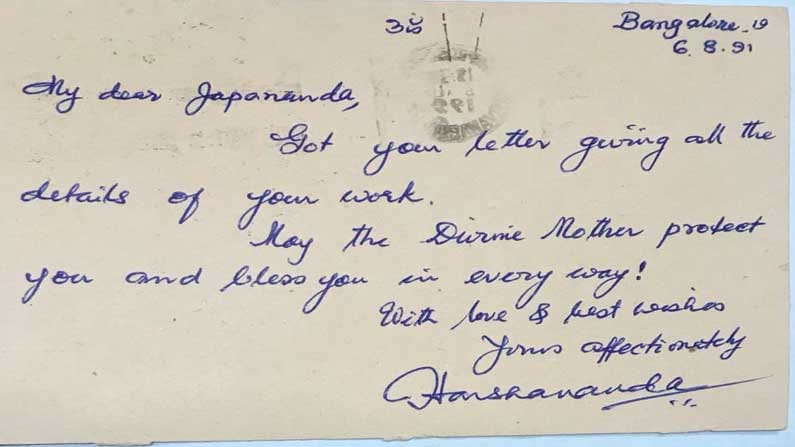 ॐ
Bangalore-19
6.8.91
My dear Japananda,
Got your letter giving all the
details of your work.
May the Divine Mother protect
you and bless you in every way!
With love & best wishes
Yours affectionately
Harshananda